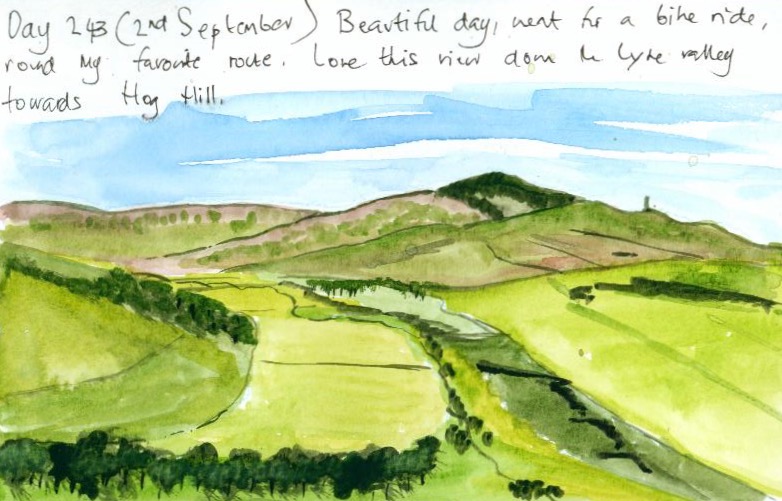 Day 243 (2nd September) Beautiful day, went for a bike ride,
round my favourite route. Love this view down the Lyne valley
towards Hog Hill.